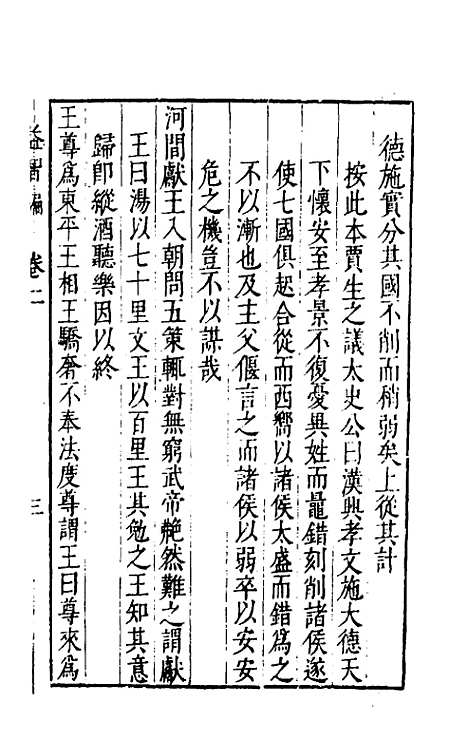 德施實分其國不削而稍弱矣上從其計
按此本賈生之議太史公曰漢興孝文施大德天
下懷安至孝景不復憂異姓而鼂錯刻削諸侯遂
使七國俱起合從而西嚮以諸侯太盛而錯爲之
不以漸也及主父偃言之而諸侯以弱卒以安安
危之機豈不以謀哉
河間獻王入朝問五策輒對無窮武帝艴然難之謂獻
王曰湯以七十里文王以百里王其勉之王知其意
歸卽縱酒聽樂因以終
王尊爲東平王相王驕奢不奉法度尊謂王曰尊來爲
益智編 卷二 三